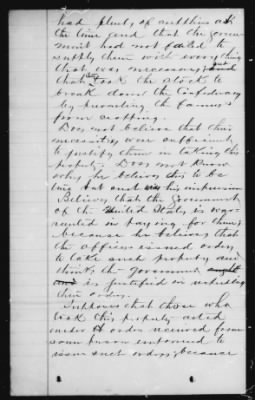 had plenty of anything at
the time and that the govern-
ment had not failed to
supply them with everything
that was necessary, and
that they took the stock to
break down the Confederacy
by preventing the farmers
from cropping.
Does not believe that their
necessities were sufficient
to justify them in taking this
property. Does not know
why he believes this to be
but his impression
Believes that the Government
of the United States is war-
ranted in paying for these
because he believes that
the officers issued orders
to take such property and
thinks the government ought
and is justified in
their orders.
Supposes that those who
took this property acted
under orders received from
some person empowered to
issue such orders, because